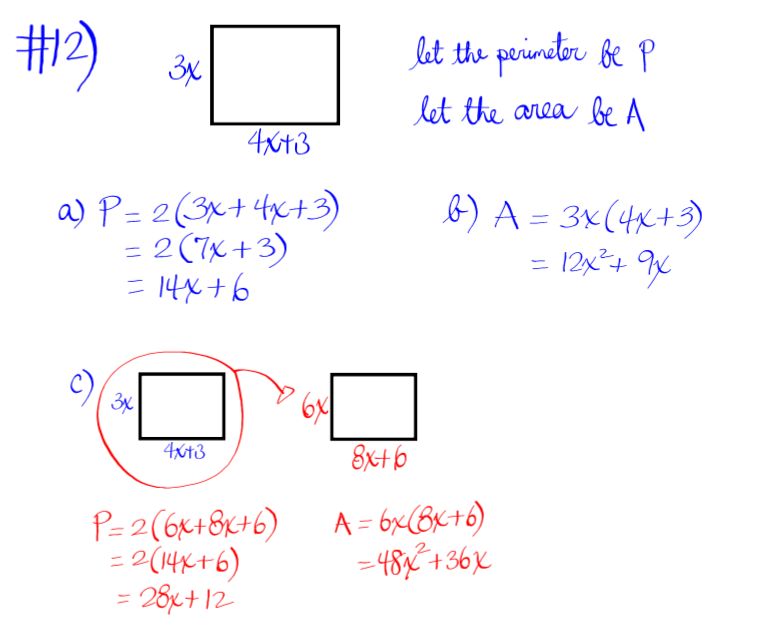 #12)
3x
4x+3
let the perimeter be P
let the area be A
a) P = 2(3x + 4x + 3)
= 2(7x + 3)
= 14x + 6
b) A = 3x(4x + 3)
= 12x² + 9x
c)
3x
4x+3
6x
8x+6
P = 2(6x+8x+6)
= 2(14x+6)
= 28x + 12
A = 6x(8x+6)
= 48x² + 36x